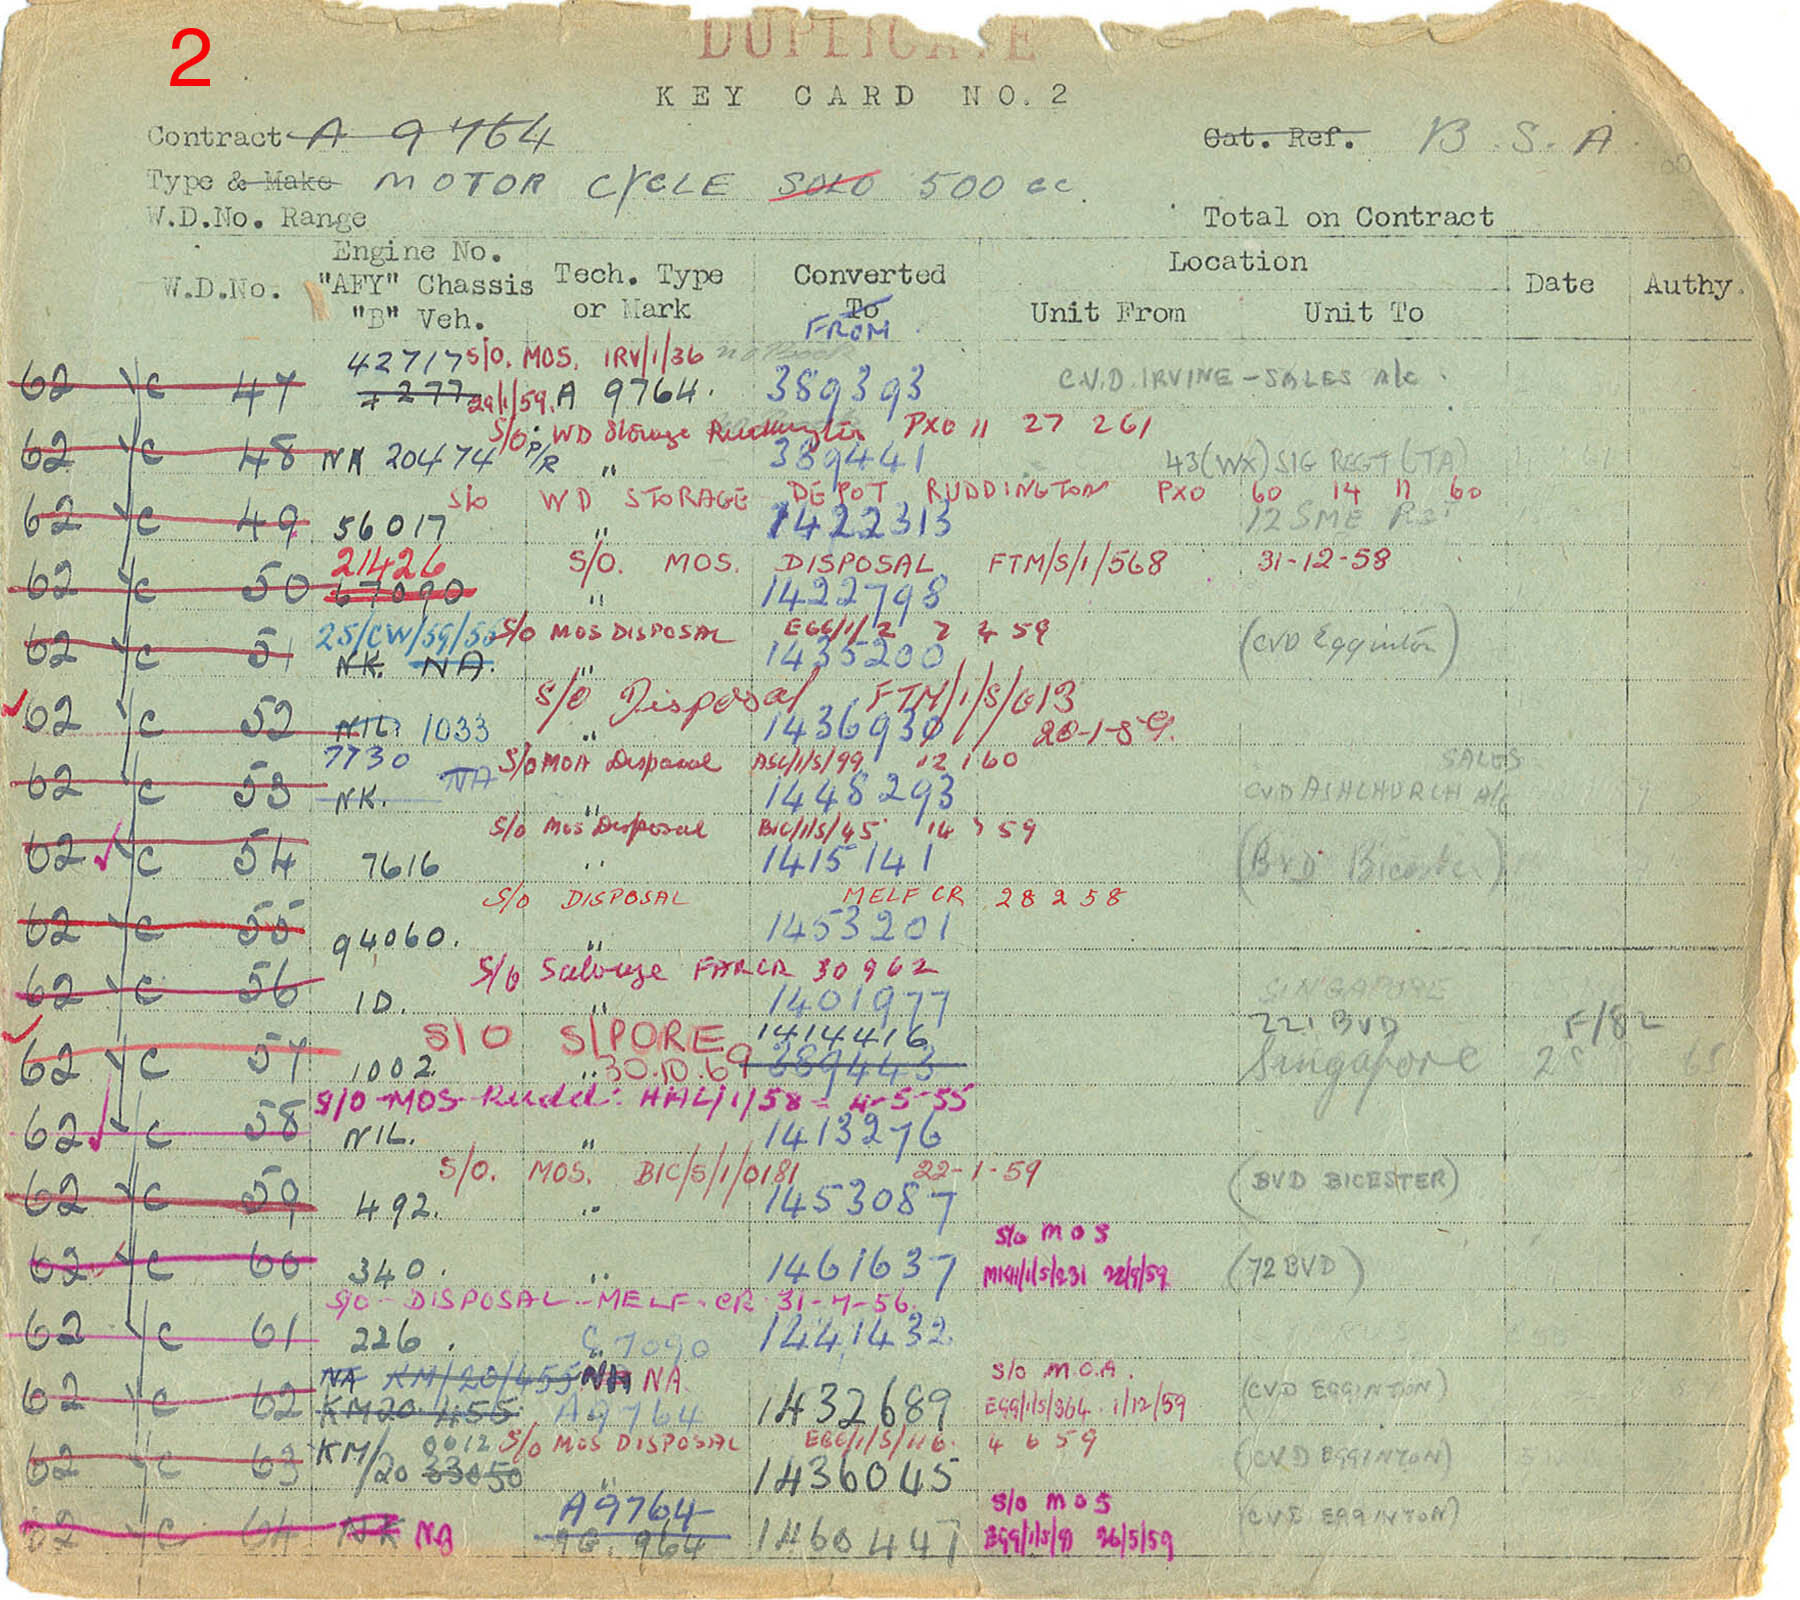 2
DUPLICATE
KEY CARD NO.2
Contract A 9764 Cat. Ref. B.S.A.
Type & Make MOTOR CYCLE SOLO 500 cc.
W.D.No. Range Total on Contract
W.D.No. Engine No. "AFY" Chassis "B" Veh. Tech. Type or Mark Converted To FROM Location Unit From Unit To Date Authy.
42717 S/O. MOS. IRV/1/36 no Book
62 YC 47 7277 29/1/59. A 9764. 389393 C.V.D. IRVINE - SALES A/c.
S/O. WD Storage PXO 11 27 261
62 YC 48 NA 20474 P/R " 389441 43(WX) SIG REGT (TA)
S/O WD STORAGE DEPOT RUDDINGTON PXO 60 14 11 60
62 YC 49 56017 " 1422313 12 SME
21426 S/O. MOS. DISPOSAL FTM/S/1/568 31-12-58
62 YC 50 67090 " 1422798
25/CW/59/56 S/O MOS DISPOSAL EGG/1/2 2 4 59
62 YC 51 NK. NA. " 1435200 (CVD Egginton)
S/O Disposal FTM/1/S/613
62 YC 52 NIL. 1033 " 1436930 20-1-59.
7730 S/O MOA Disposal ASC/1/S/99 12 1 60 SALES
62 YC 53 NK. NA " 1448293 CVD ASHCHURCH A/C
S/O Mos Disposal BIC/1/S/45 14 5 59
62 YC 54 7616 " 1415141 (BVD Bicester)
S/O DISPOSAL MELF CR 28 2 58
62 YC 55 94060. " 1453201
S/O Salvage FARCR 30 9 62
62 YC 56 1D. " 1401977 SINGAPORE
S/O S/PORE 1414416 221 BVD F/82
62 YC 57 1002. " 30.10.69 389443 Singapore
S/O-MOS-Rudd: HAL/1/58 - 4-5-55
62 YC 58 NIL. " 1413276
S/O. MOS. BIC/S/1/0181 22-1-59
62 YC 59 492. " 1453087 (BVD BICESTER)
S/O MOS
62 YC 60 340. " 1461637 MKH/1/S/231 22/9/59 (72 BVD)
S/O-DISPOSAL-MELF-CR 31-7-56.
62 YC 61 226. C 7090 1441432.
NA KM/20/455 NA NA. S/O M.O.A.
62 YC 62 KM20 455 A9764 1432689 EGG/1/S/364 1/12/59 (CVD EGGINTON)
KM/ 0012 S/O MOS DISPOSAL EGG/1/S/116. 4 6 59
62 YC 63 /20 33050 " 1436045 (CVD EGGINTON)
A9764 S/O MOS
62 YC 64 NK NA 9G. 964 1460447 EGG/1/S/91 26/5/59 (CVD EGGINTON)